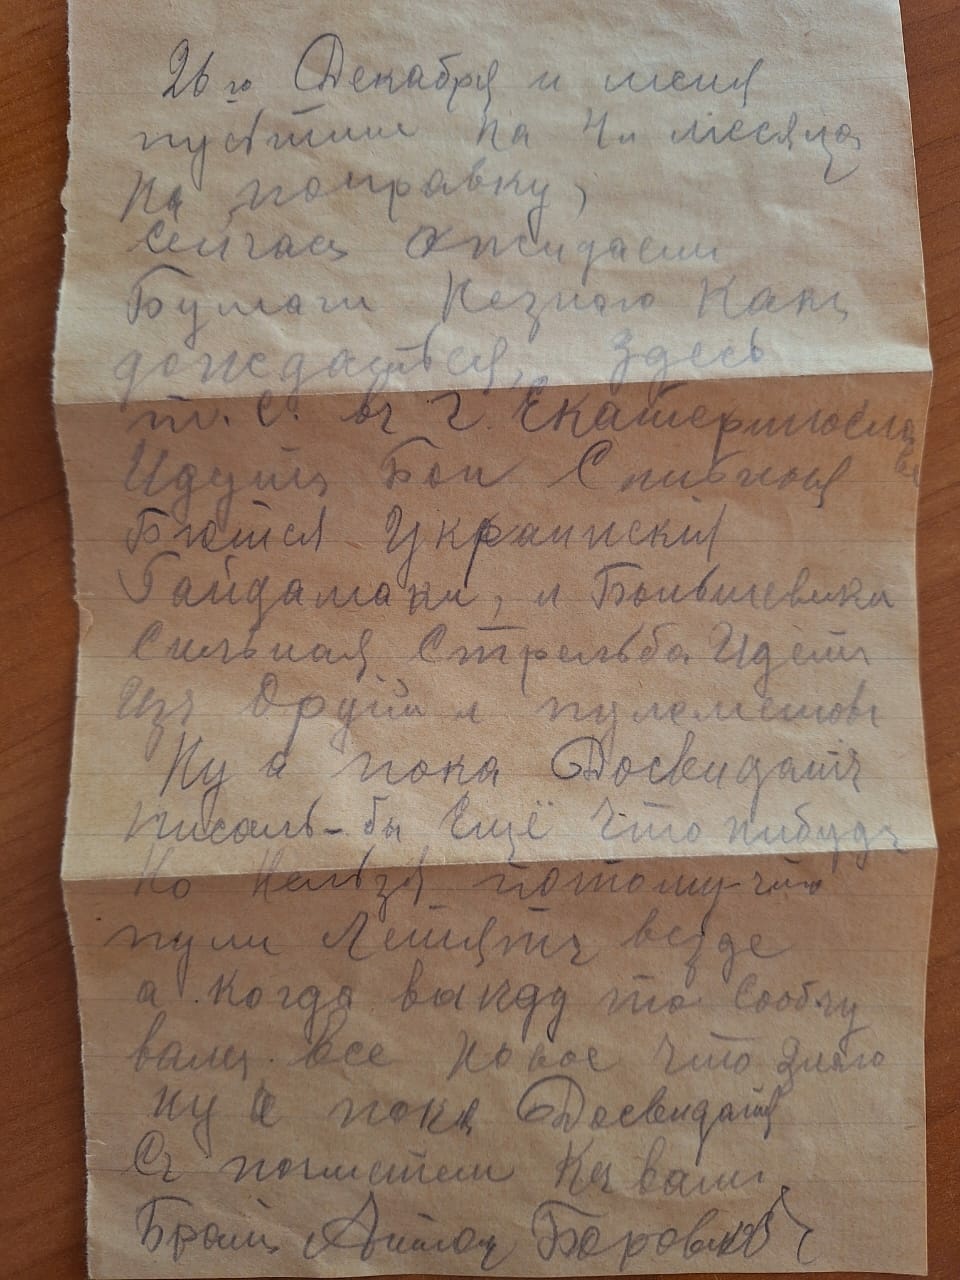 26го Декабря и меня
пустили на 4 месяца
на поправку,
Сейчасъ Ожидаем
Бумаги Незнаю Какъ
дождаться, здесь
т. С. въ г. Екатеринослав
Идутъ Бои Сильныя
Бются Украинския
Гайдамаки, и Большевики
Сильная Стрельба Идёт
Изъ Орудий и пулеметовъ
Ну а пока Досвидать
писаль-бы Ещё Что нибудь
Но Нельзя потому-что
пули Летятъ везде
а когда выйду то Сообчу
вамъ все новое что Знаю
ну а пока Досвидатя
Съ почтетем Къ вам
Братъ Антонъ Боровков